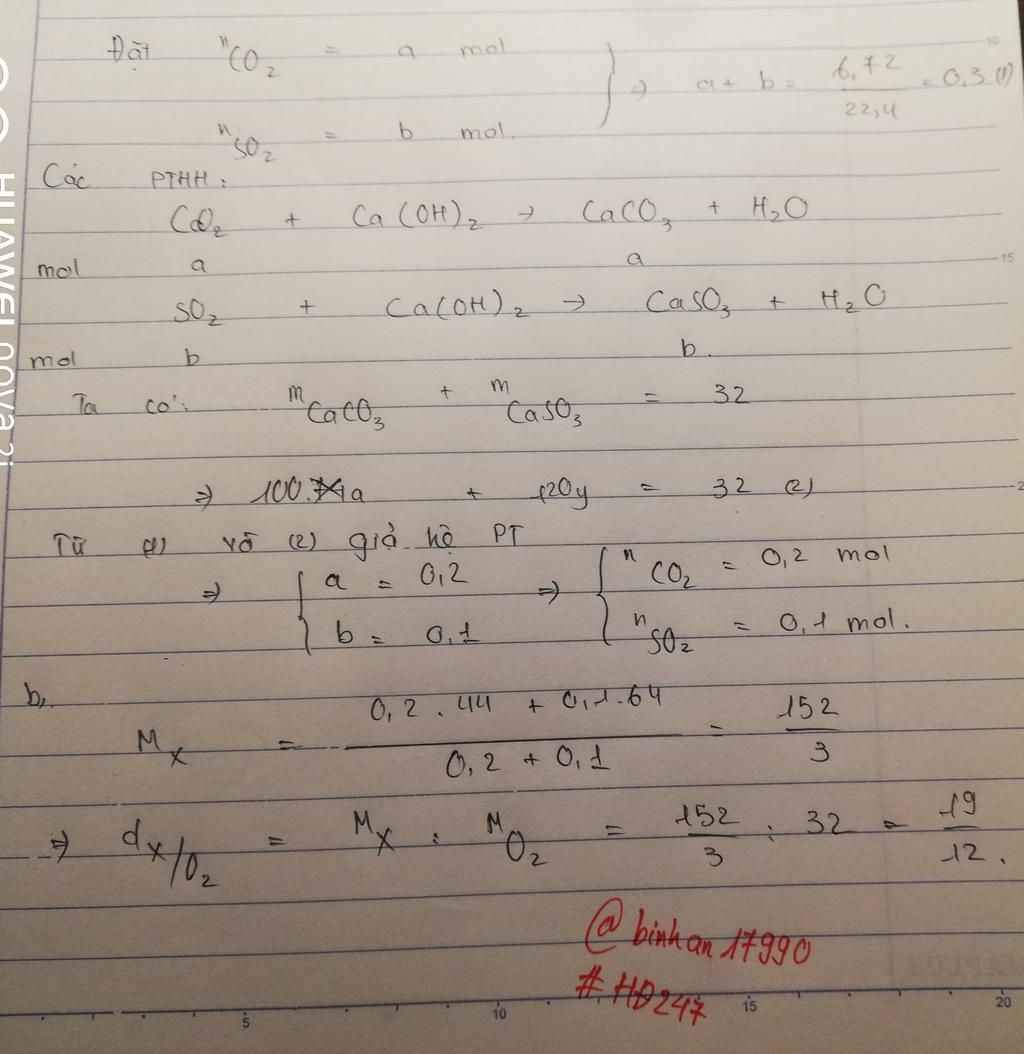 Đặt nCO2 = a mol
nSO2 = b mol.
} => a + b = 6,72/22,4 = 0,3 (1)
Các PTHH:
CO2 + Ca(OH)2 → CaCO3 + H2O
mol a a
SO2 + Ca(OH)2 → CaSO3 + H2O
mol b b.
Ta có: mCaCO3 + mCaSO3 = 32
=> 100.a + 120y = 32 (2)
Từ (1) và (2) giả hệ PT
=> { a = 0,2 => { nCO2 = 0,2 mol
b = 0,1 nSO2 = 0,1 mol.
b, MX = (0,2.44 + 0,1.64)/(0,2 + 0,1) = 152/3
=> dX/O2 = MX : MO2 = 152/3 : 32 = 19/12.
@binhan17990
#HĐ247
5 10 15 20
10
15
2
HUAWEI nova 2i